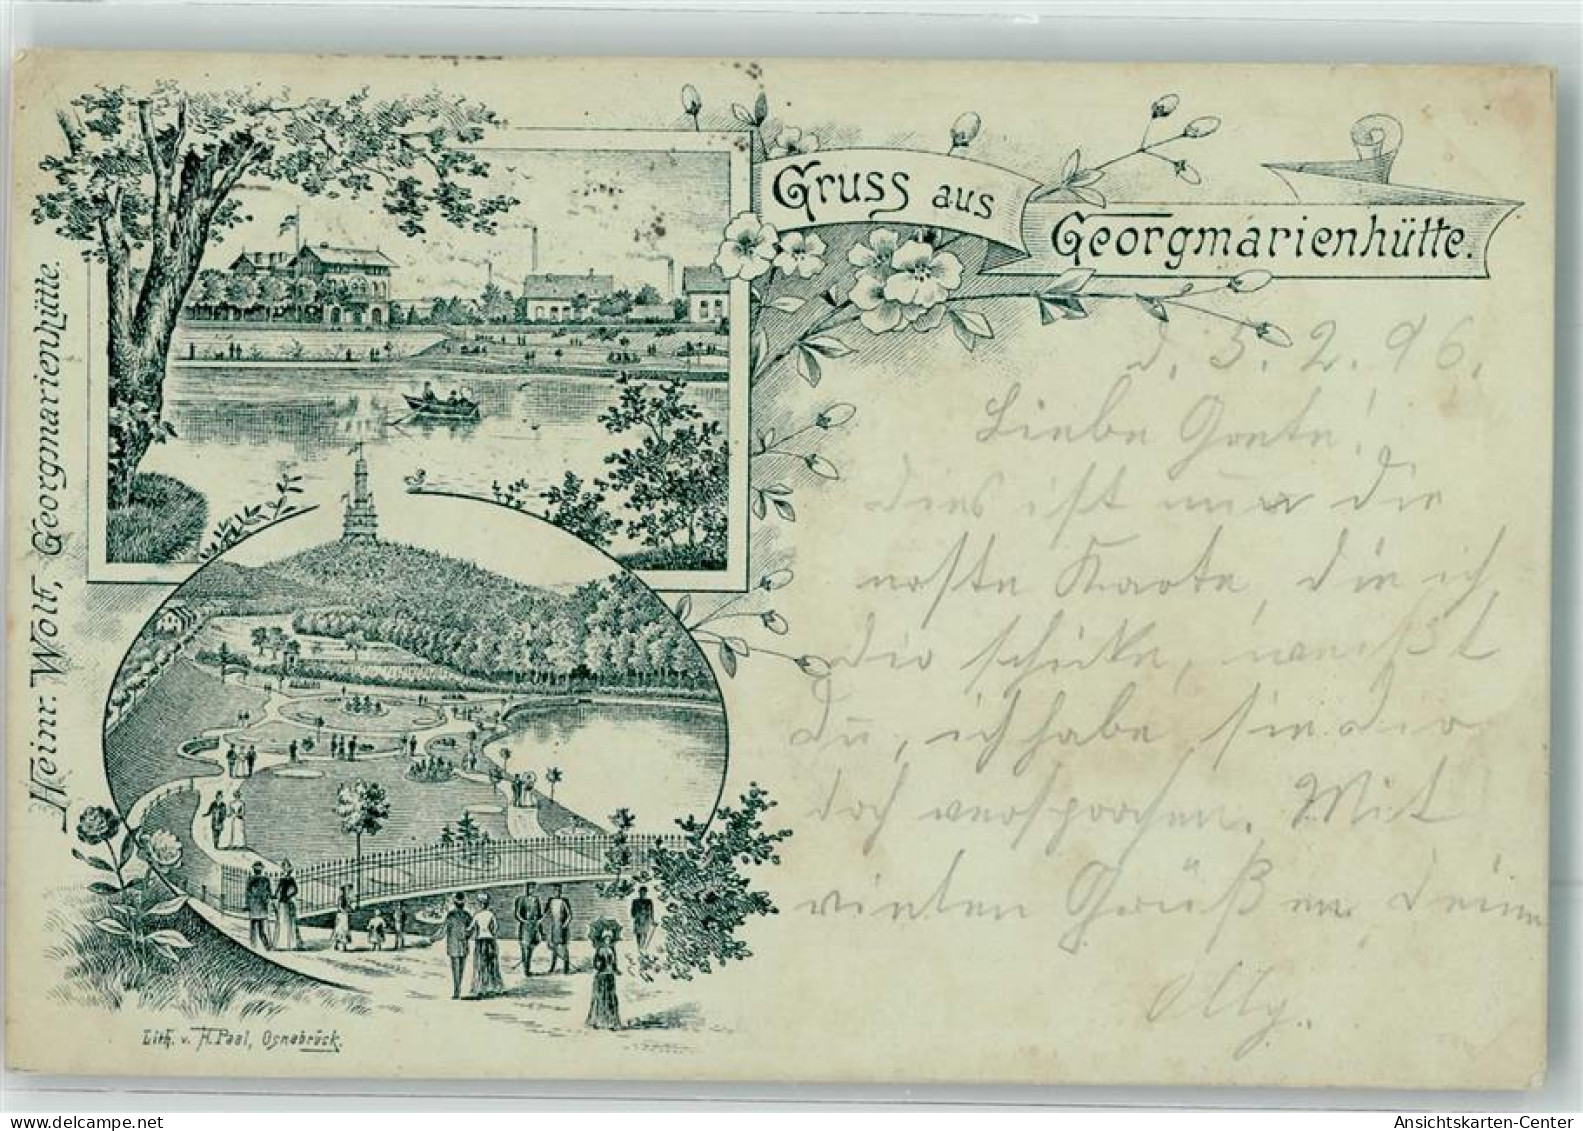 Gruss aus
Georgmarienhütte.
Heinr. Wolf, Georgmarienhütte.
d. 5. 2. 96.
Liebe Grete!
dies ist nun die
erste Karte, die ich
dir schicke, weißt
du, ich habe sie dir
doch versprochen. Mit
vielen Grüßen Deine
Olly.
Lith. v. H. Paal, Osnabrück.
Ansichtskarten-Center